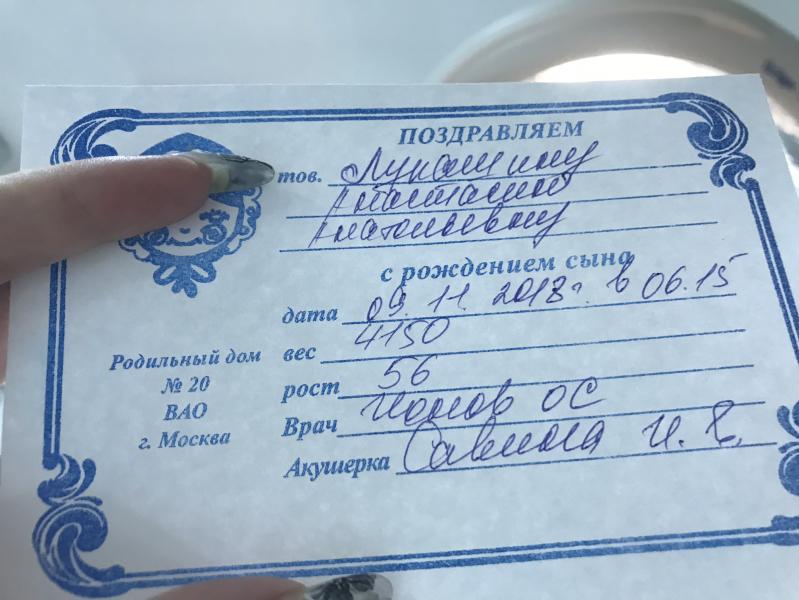 ПОЗДРАВЛЯЕМ
тов. Лукашину
Анастасию
Анатольевну
с рождением сына
дата 09.11.2018г. в 06.15
вес 4150
рост 56
Врач ОС
Акушерка Савина И.
Родильный дом
№ 20
ВАО
г. Москва